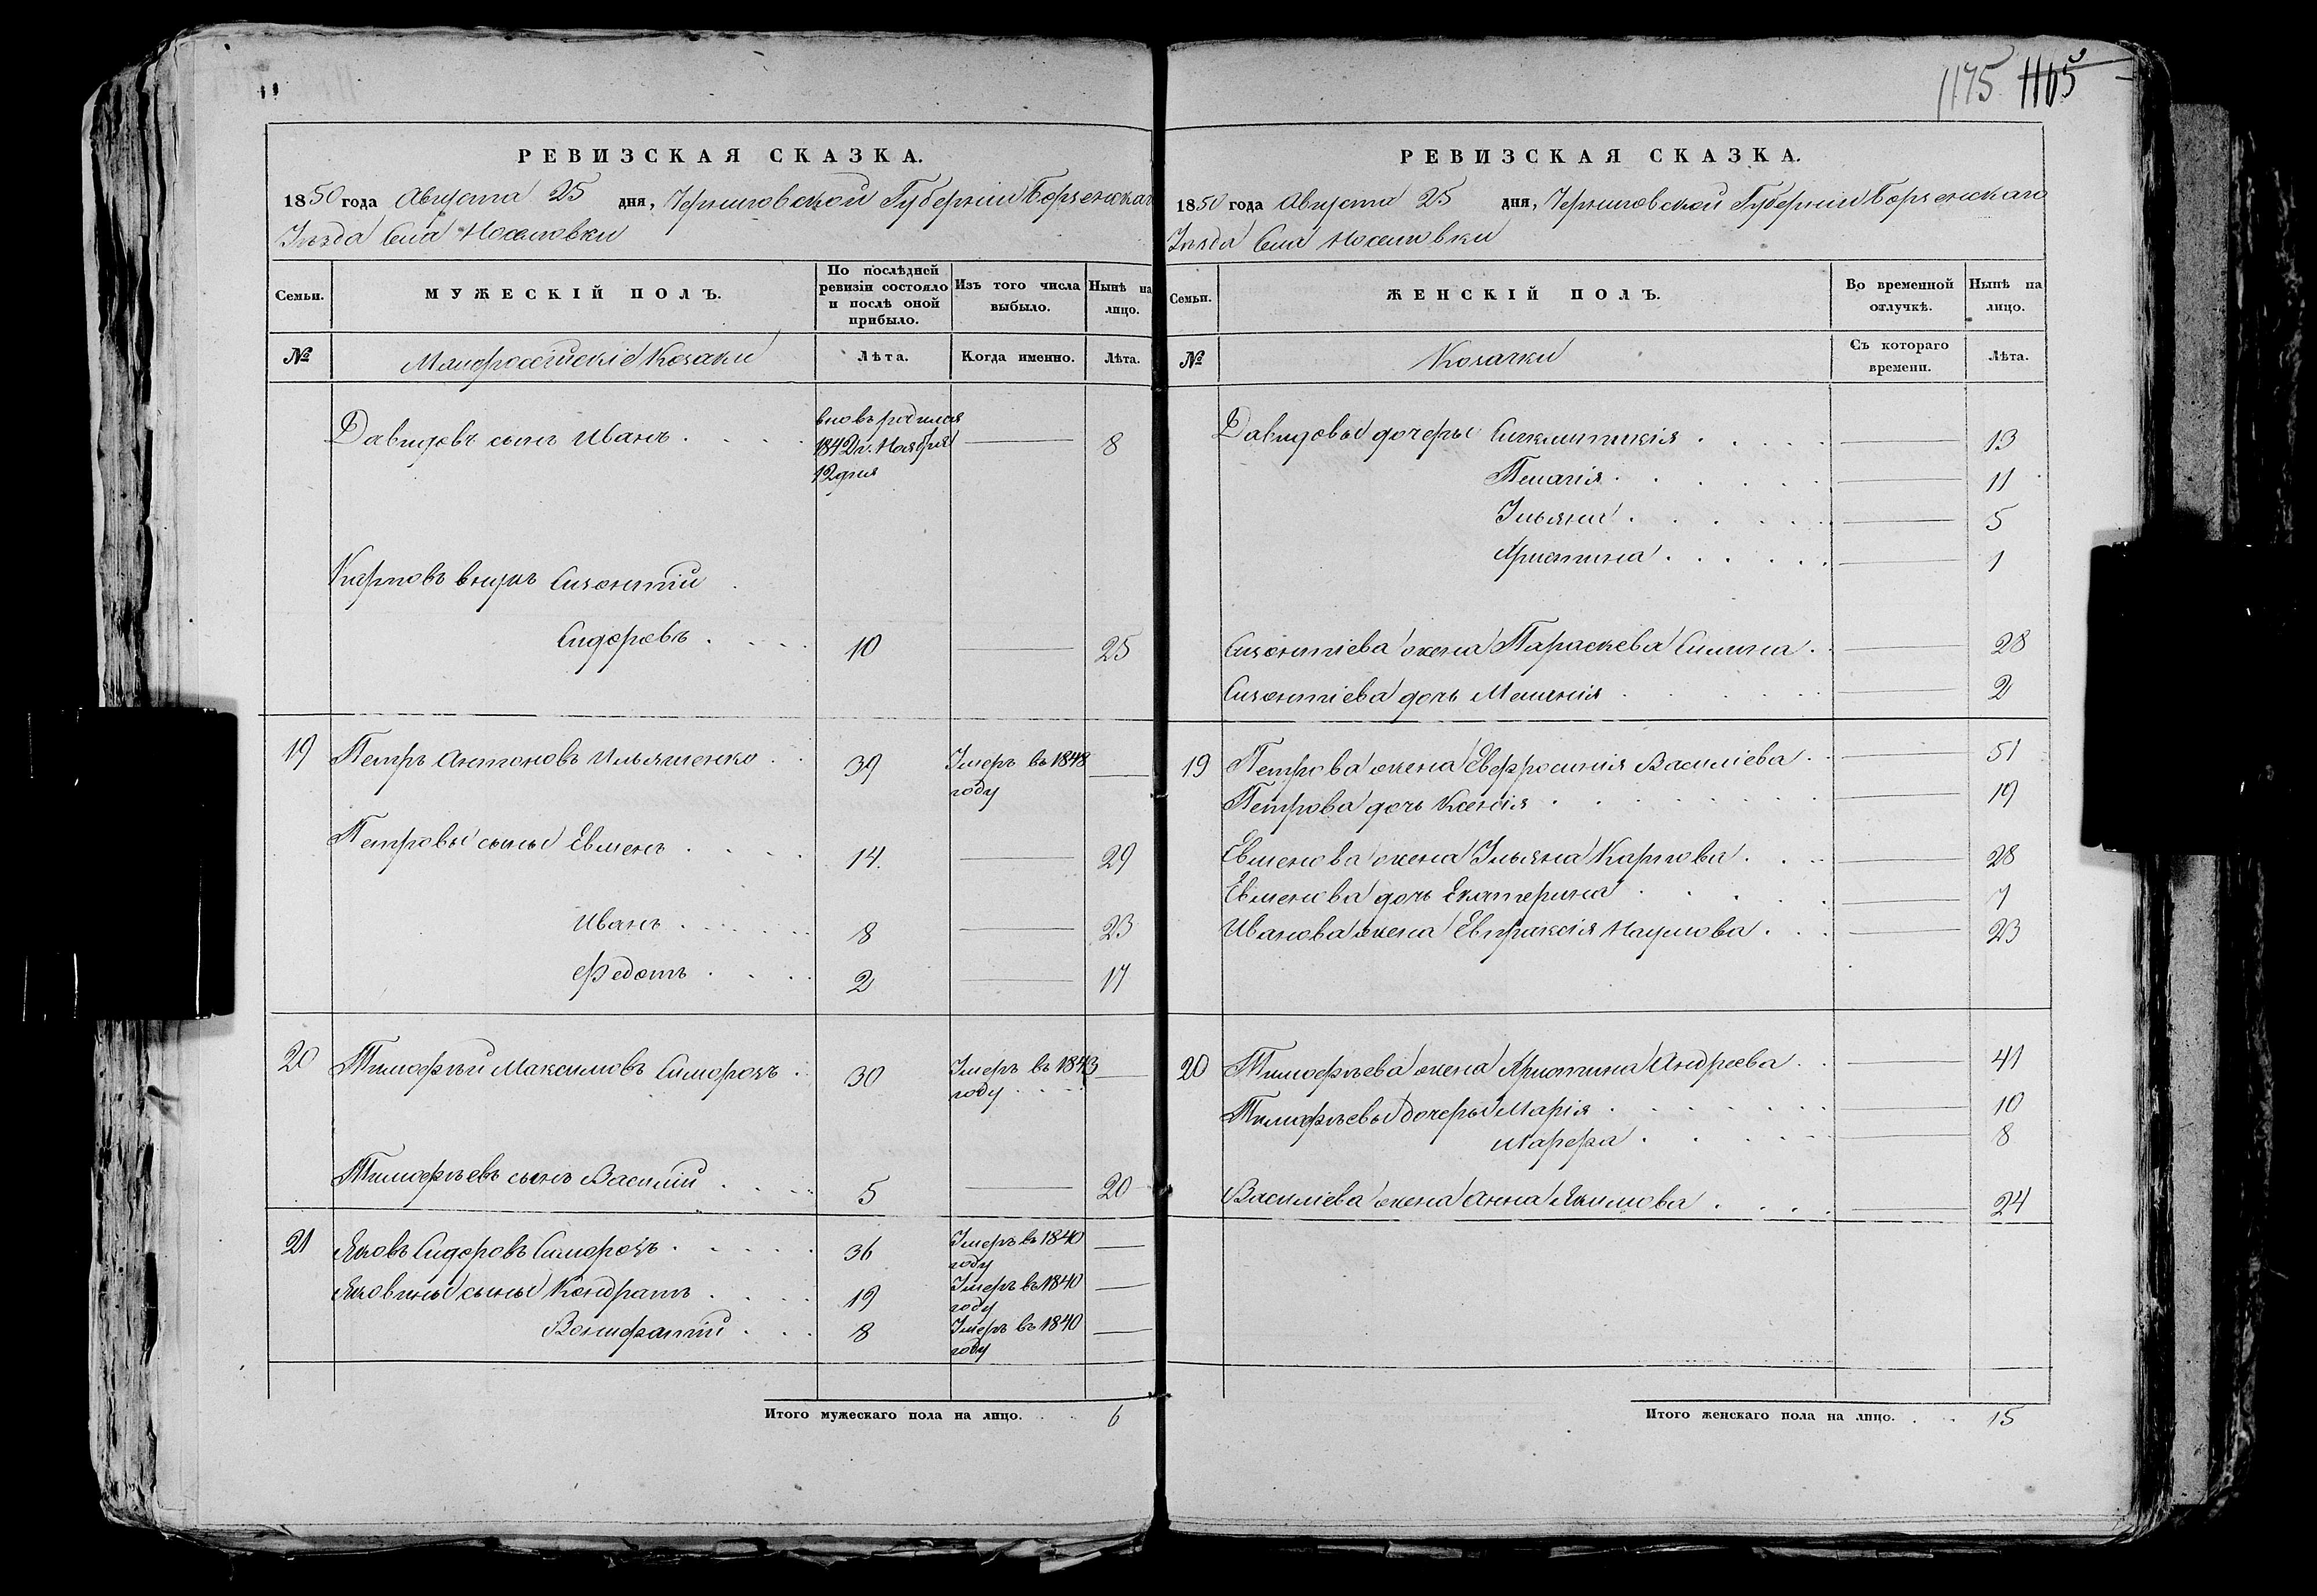 1175 1165
РЕВИЗСКАЯ СКАЗКА.
1850 года Августа 25 дня, Черниговской Губерніи Борзенскаго
Уѣзда Села Носеловки
Семьи.
МУЖЕСКІЙ ПОЛЪ.
По послѣдней
ревизіи состояло
и послѣ оной
прибыло.
Изъ того числа
выбыло.
Нынѣ на
лицо.
№
Малороссійскіе Козаки
Лѣта.
Когда именно.
Лѣта.
Давидовъ сынъ Иванъ . . . . вновь родился 1842 г. Ноября 12 дня — 8
Карповъ внукъ Сизонтій
Сидоровъ . . . . 10 — 25
19 Петръ Антоновъ Ильяшенко . . 39 Умеръ въ 1848 году —
Петровы сыны Евменъ . . . . 14. — 29
Иванъ . . . . . . 8 — 23
Федотъ . . . . 2 — 17
20 Тимофѣй Максимовъ Симорозъ . 30 Умеръ въ 1843 году —
Тимофѣевъ сынъ Василій . . . . 5 — 20
21 Яковъ Сидоровъ Симорозъ . . . . . 36 Умеръ въ 1840 году —
Яковины сыны Кондратъ . . . . 19 Умеръ въ 1840 году —
Вонифатій . . . 8 Умеръ въ 1840 году —
Итого мужескаго пола на лицо. . . . 6
РЕВИЗСКАЯ СКАЗКА.
1850 года Августа 25 дня, Черниговской Губерніи Борзенскаго
Уѣзда Села Носеловки
Семьи.
ЖЕНСКІЙ ПОЛЪ.
Во временной
отлучкѣ.
Нынѣ на
лицо.
№
Козачки
Съ котораго
времени.
Лѣта.
Давидовы дочеры Синклитикія . . . . . — 13
Пелагія . . . . . . — 11
Ульяна . . . . . . — 5
Христина . . . . . . — 1
Сизонтіева жена Параскева Силина . . — 28
Сизонтіева дочь Меланія . . . . . . 2
19 Петрова жена Евфросинія Василіева . . — 51
Петрова дочь Ксенія . . . . . . . . — 19
Евменова жена Ульяна Карпова . . . . — 28
Евменова дочь Екатерина . . . . . — 7
Иванова жена Евпраксія Наумова . . . — 23
20 Тимофѣева жена Христина Андреева . . — 41
Тимофѣевы дочеры Марія . . . . . . . — 10
Марфа . . . . . . — 8
Василіева жена Анна Якимова . . . . — 24
Итого женскаго пола на лицо. . . . 15